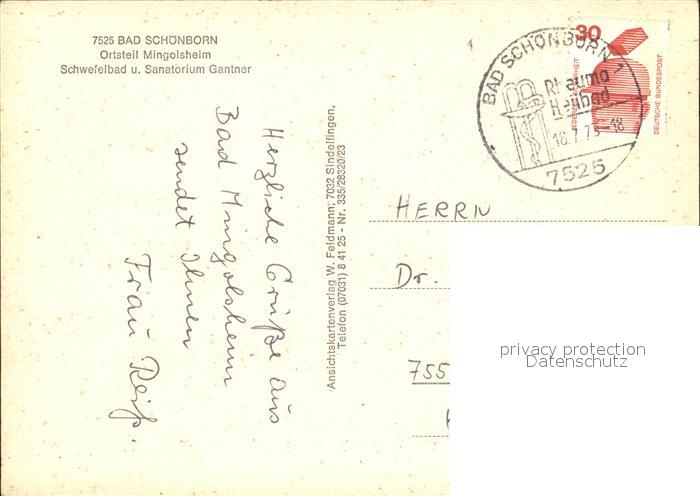 7525 BAD SCHÖNBORN
Ortsteil Mingolsheim
Schwefelbad u. Sanatorium Gantner
Herzliche Grüße aus
Bad Mingolsheim
sendet Ihnen
Frau Reiß.
Ansichtskartenverlag W. Feldmann, 7032 Sindelfingen,
Telefon (07031) 8 41 25 - Nr. 335/28320/23
BAD SCHÖNBORN
Rheuma
Heilbad
18.7.75-18
7525
30
DEUTSCHE BUNDESPOST
HERRN
Dr.
755
privacy protection
Datenschutz